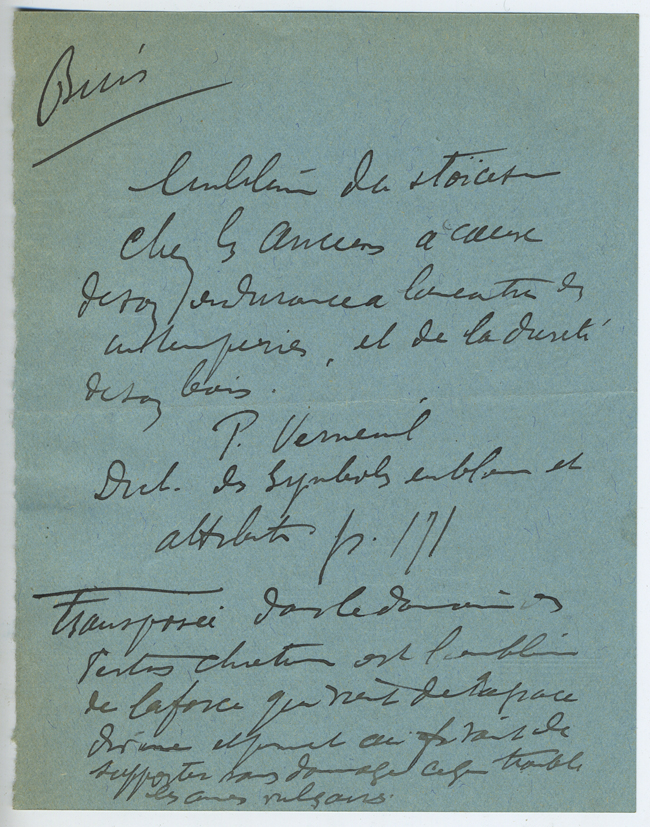 Buis
Emblème du stoïcisme
chez les Anciens a cause
de son endurance a l'encontre des
intemperies, et de la dureté
de son bois.
P. Verneuil
Dict. des Symboles emblemes et
attributs p. 171
Transposée dans le domaine des
vertus chretiennes est l'emblème
de la force qui vient de la grace
divine et permet au de
supporter sans dommage ce qui trouble
les ames vulgaires.